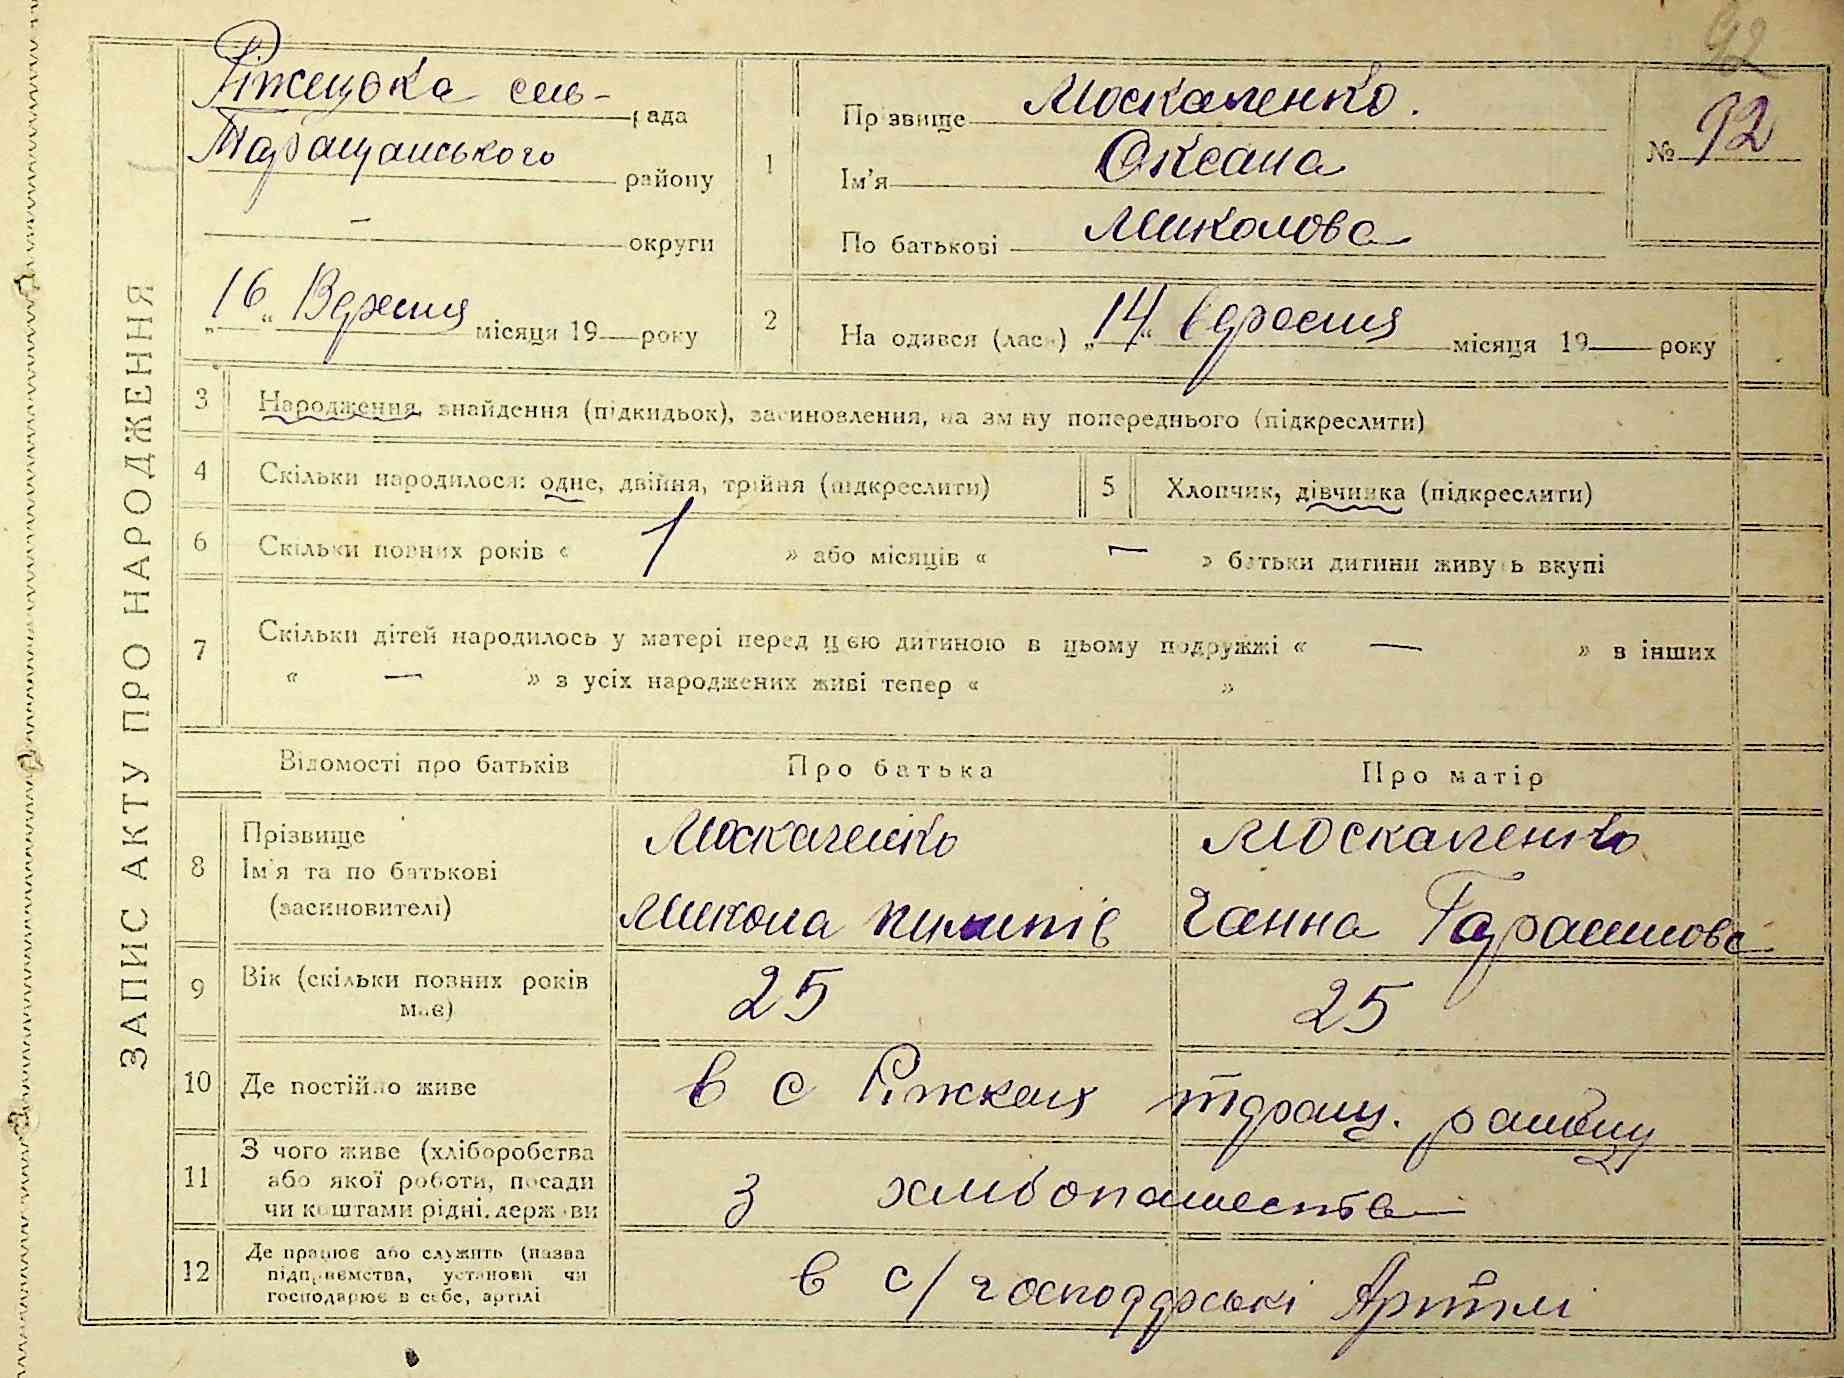 92
ЗАПИС АКТУ ПРО НАРОДЖЕННЯ
Ріжецька сель-
рада
Таращанського
району
— округи
„16“ Вересня місяця 19— року
1
Прізвище Москаленко.
Ім'я Оксана
По батькові Миколова
№ 92
2
На одився (лась) „14“ вересня місяця 19— року
3 Народження, знайдення (підкидьок), засиновлення, на зміну попереднього (підкреслити)
4 Скільки народилося: одне, двійня, трійня (підкреслити) 5 Хлопчик, дівчинка (підкреслити)
6 Скільки повних років « 1 » або місяців « — » батьки дитини живуть вкупі
7 Скільки дітей народилось у матері перед цією дитиною в цьому подружжі « — » в інших
« — » з усіх народжених живі тепер « »
Відомості про батьків Про батька Про матір
8 Прізвище
Ім'я та по батькові
(засиновителі)
Москаленко
Микола Пилипів
Москаленко
Ганна Гарасимова
9 Вік (скільки повних років
має)
25 25
10 Де постійно живе в с Ріжках Таращ. району
11 З чого живе (хліборобства
або якої роботи, посади
чи коштами рідні, держави
з хлібопашества
12 Де працює або служить (назва
підприємства, установи чи
господарює в себе, артілі
в с/господарські Артілі